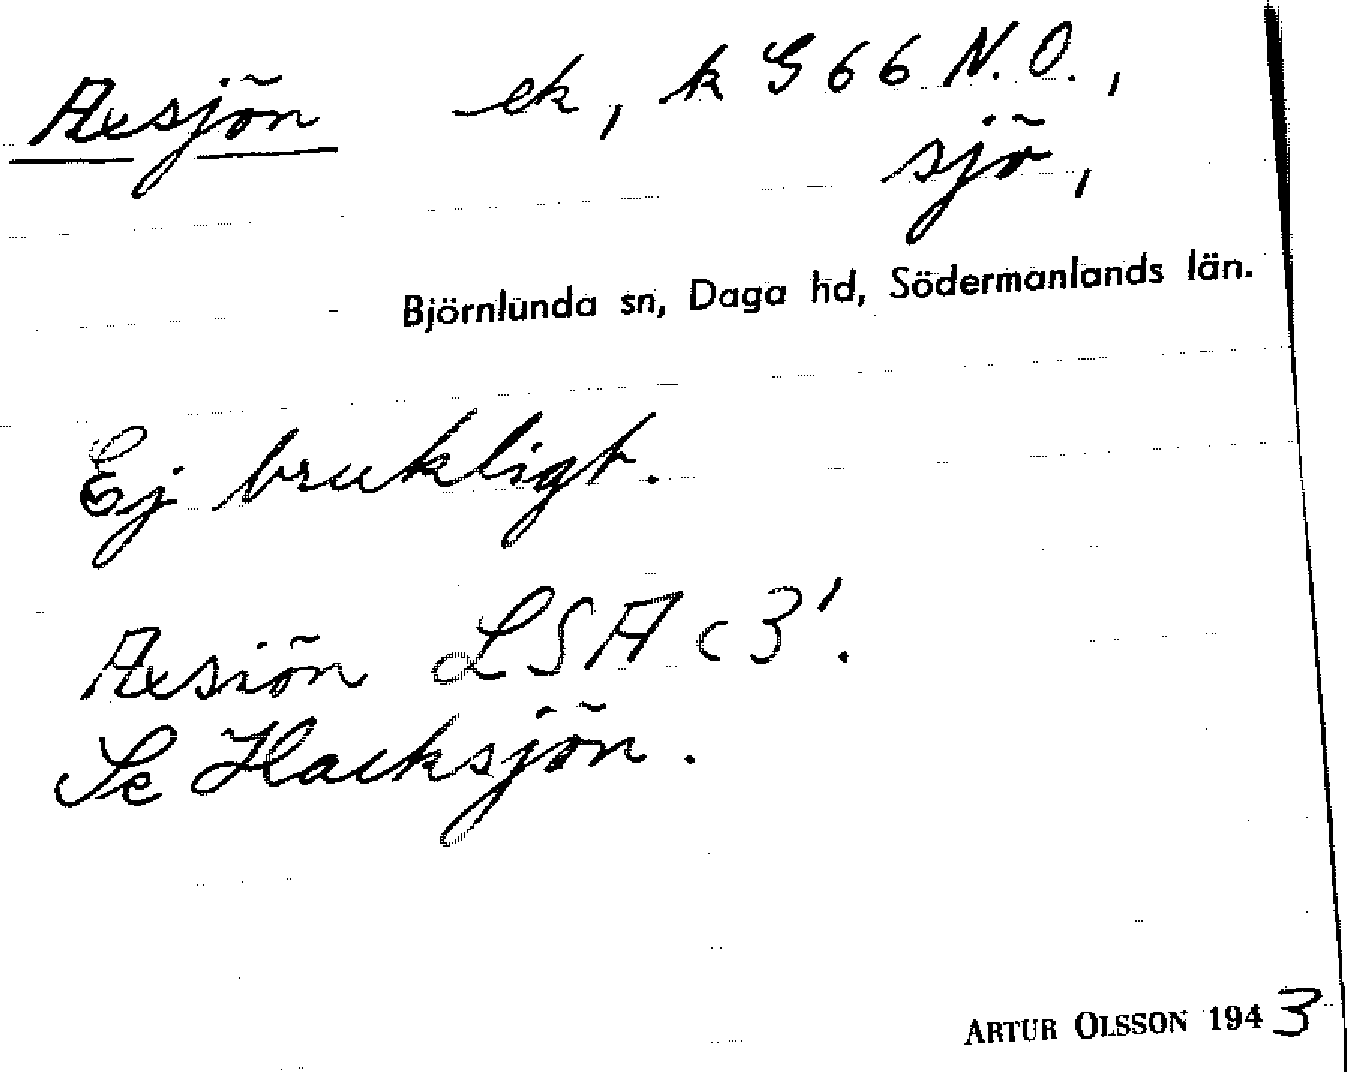 Axsjön ek, k G 66 N.O.,
sjö,
Björnlunda sn, Daga hd, Södermanlands län.
Ej brukligt.
Axsiön LSA c 3'.
Se Hacksjön.
ARTUR OLSSON 1943